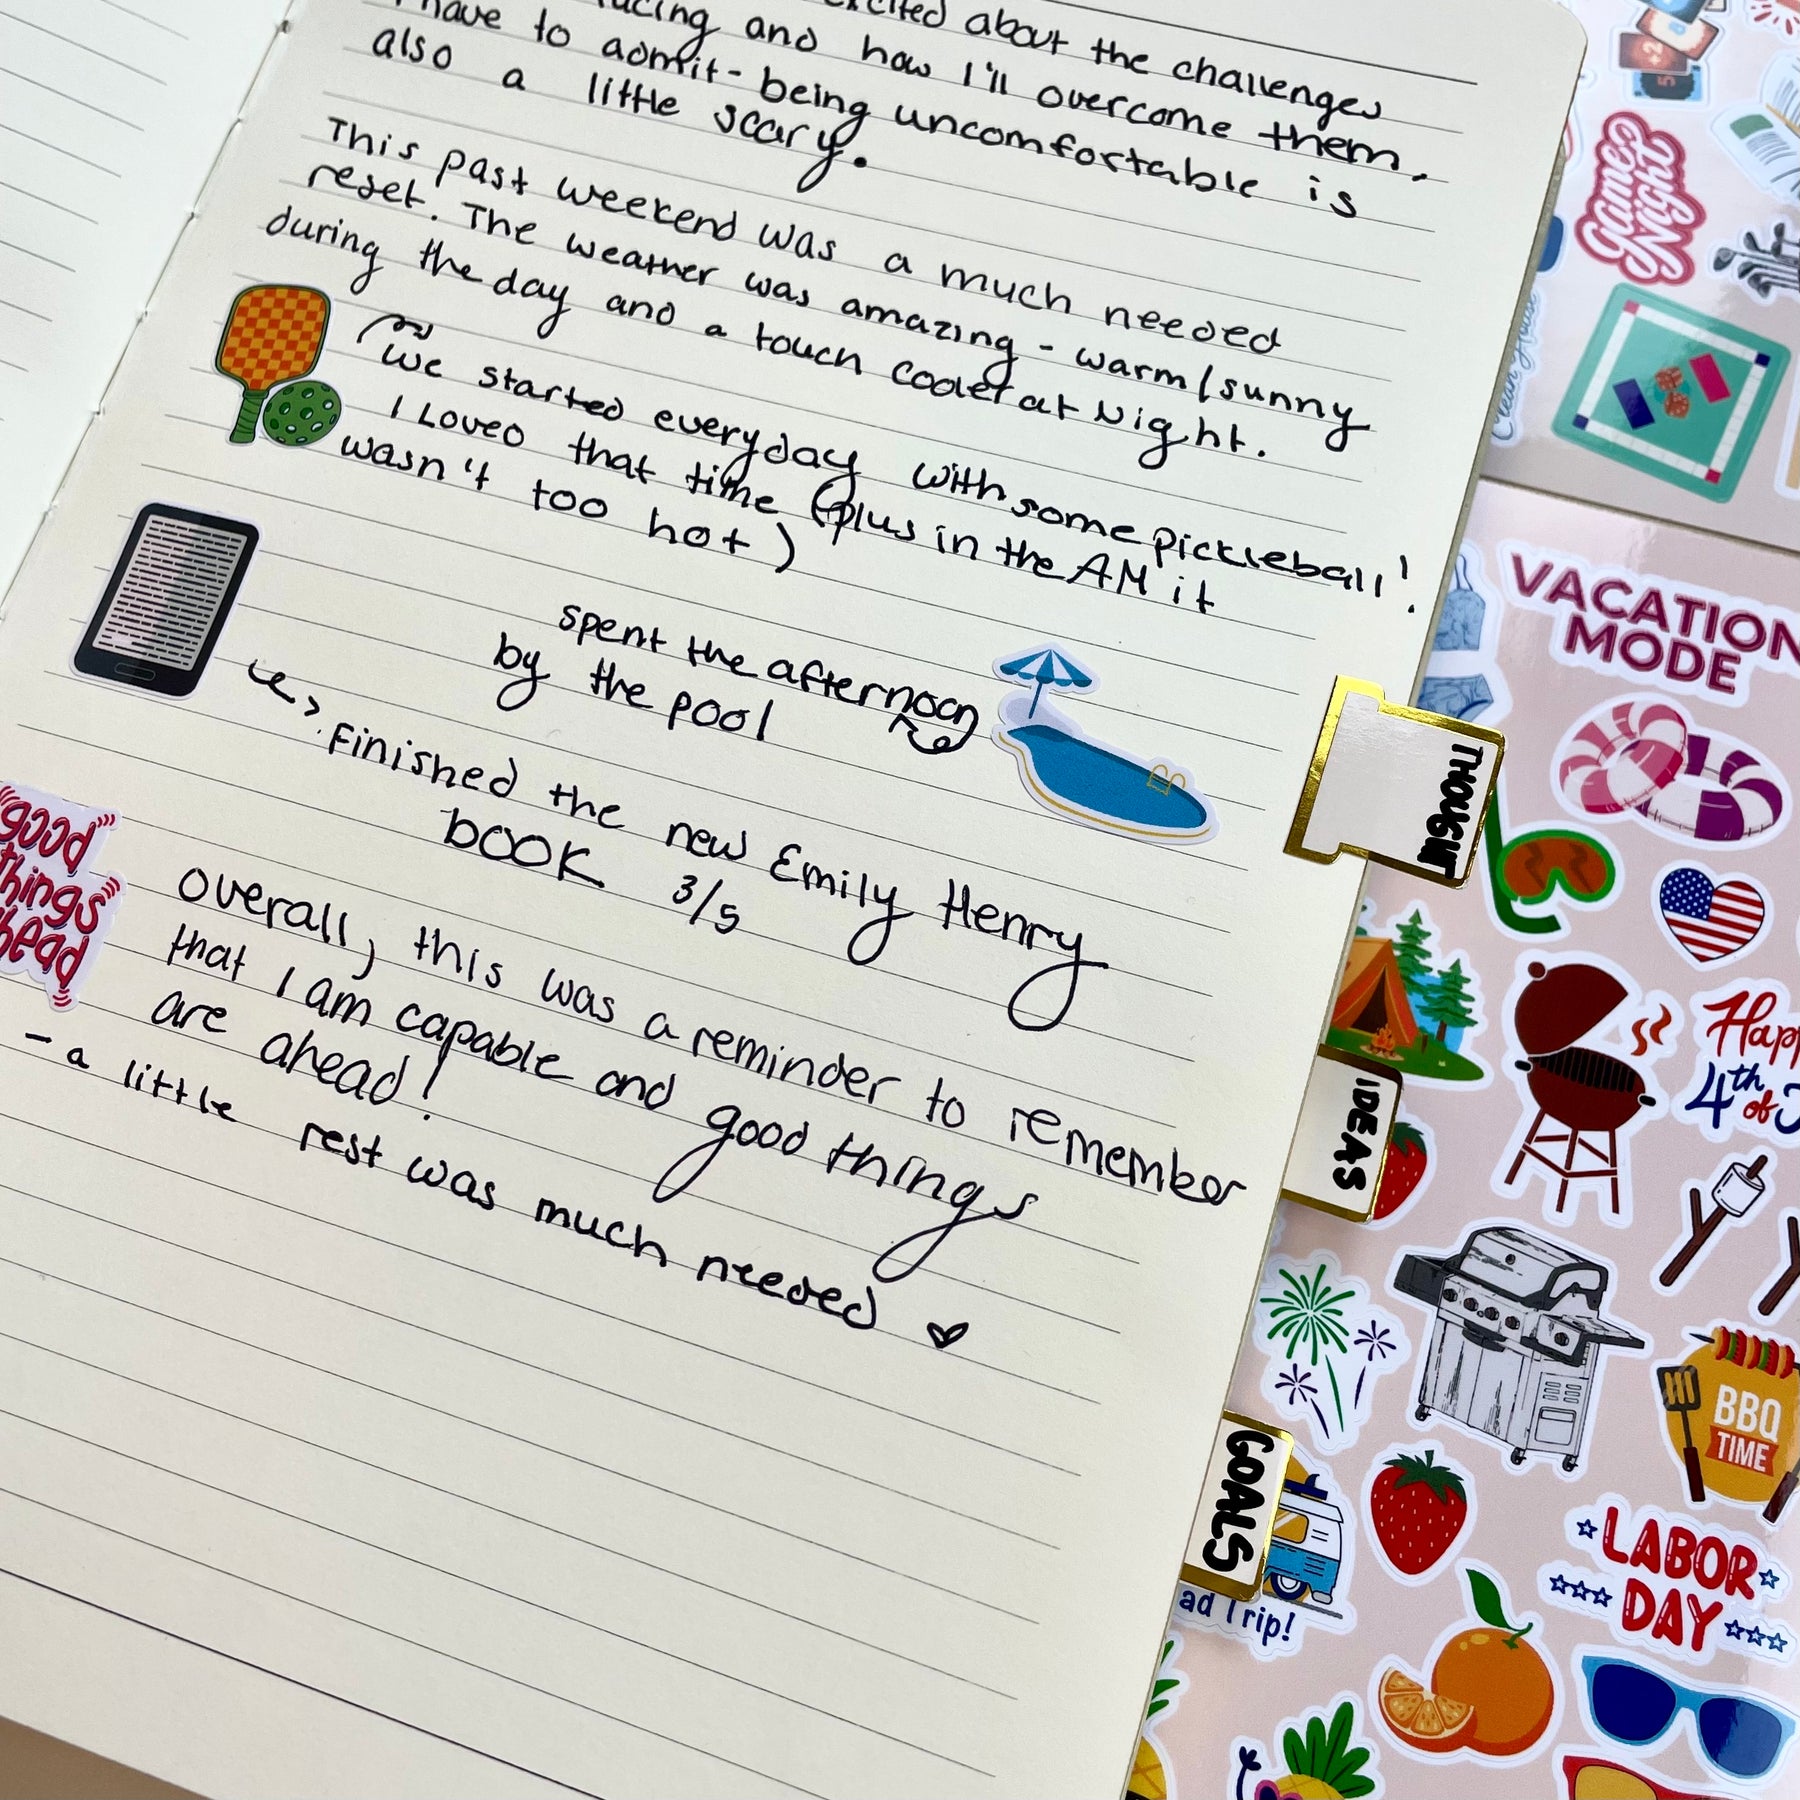 excited about the challenges
and how I'll overcome them.
have to admit - being uncomfortable is
also a little scary.
This past weekend was a much needed
reset. The weather was amazing - warm/sunny
during the day and a touch cooler at Night.
We started everyday with some pickleball!
I Loved that time (plus in the AM it
wasn't too hot)
spent the afternoon
by the pool
Finished the new Emily Henry
book 3/5
good
things
ahead
Overall, this was a reminder to remember
that I am capable and good things
are ahead!
- a little rest was much needed
THOUGHT
IDEAS
GOALS
Game
Night
Clean House
VACATION
MODE
Happy
4th of J
BBQ
TIME
LABOR
DAY
ad Trip!